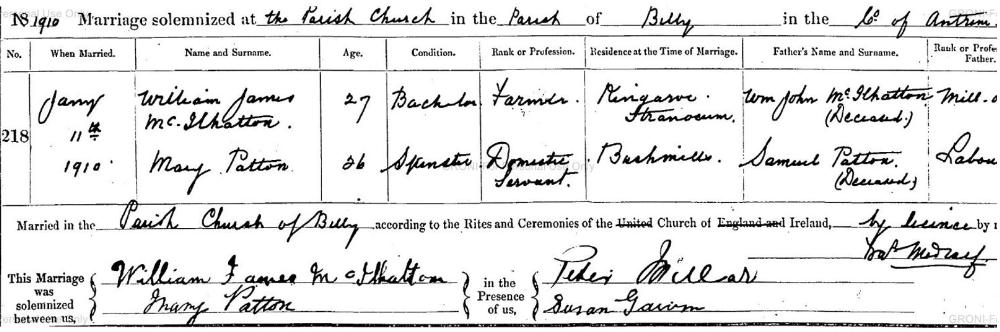 1910 Marriage solemnized at the Parish Church in the Parish of Billy in the Co of Antrim
No. When Married. Name and Surname. Age. Condition. Rank or Profession. Residence at the Time of Marriage. Father's Name and Surname. Rank or Profe
Father.
218
Jany 11th 1910
William James
McIlhatton.
27 Bachelor Farmer.
Stranocum.
Wm John McIlhatton
(Deceased.)
Mill
Mary Patton
26 Spinster Domestic
Servant.
Bushmills.
Samuel Patton.
(Deceased)
Labou
Married in the Parish Church of Billy according to the Rites and Ceremonies of the United Church of England and Ireland, by licence by
This Marriage was solemnized between us,
William James McIlhatton
Mary Patton
in the Presence of us,
Peter Millar
Susan